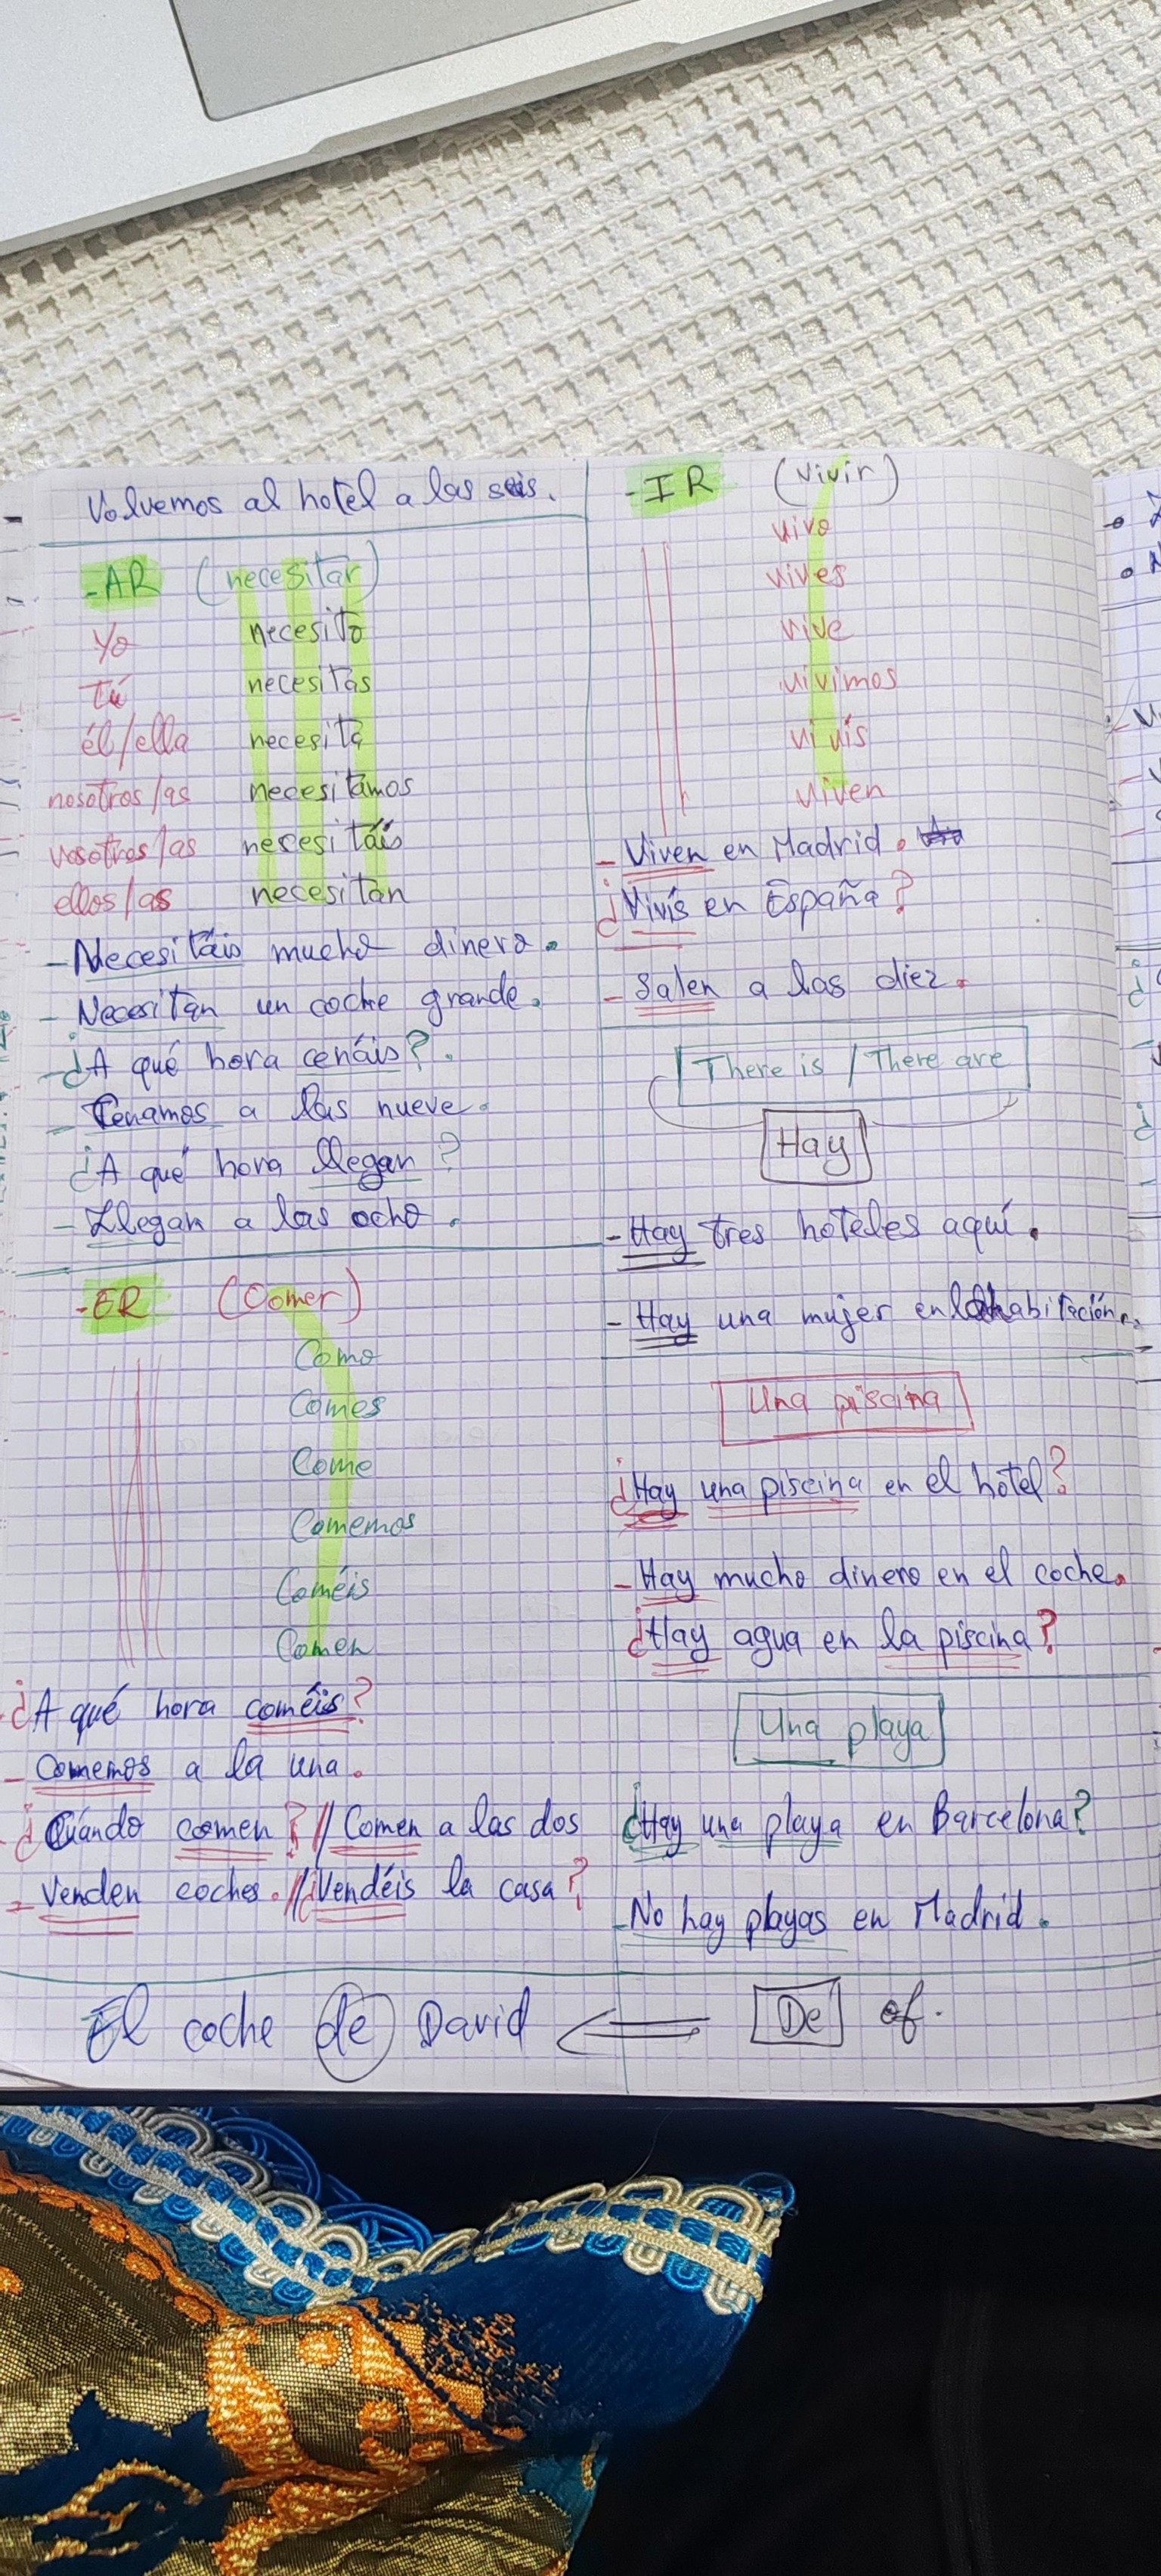 Volvemos al hotel a las seis.
-AR (necesitar)
Yo necesito
tú necesitas
él/ella necesita
nosotros/as necesitamos
vosotros/as necesitáis
ellos/as necesitan
- Necesitáis mucho dinero.
- Necesitan un coche grande.
- ¿A qué hora cenáis?.
- Cenamos a las nueve.
¿A qué hora llegan?
- Llegan a las ocho.
-ER (Comer)
Como
Comes
Come
Comemos
Coméis
Comen
¿A qué hora coméis?
- Comemos a la una.
¿Cuándo comen? // Comen a las dos
- Venden coches. // ¿Vendéis la casa?
-IR (Vivir)
vivo
vives
vive
vivimos
vivís
viven
- Viven en Madrid.
¿Vivís en España?
- Salen a las diez.
There is / There are
Hay
- Hay tres hoteles aquí.
- Hay una mujer en la habitación.
Una piscina
¿Hay una piscina en el hotel?
- Hay mucho dinero en el coche.
¿Hay agua en la piscina?
Una playa
¿Hay una playa en Barcelona?
- No hay playas en Madrid.
El coche de David De of.